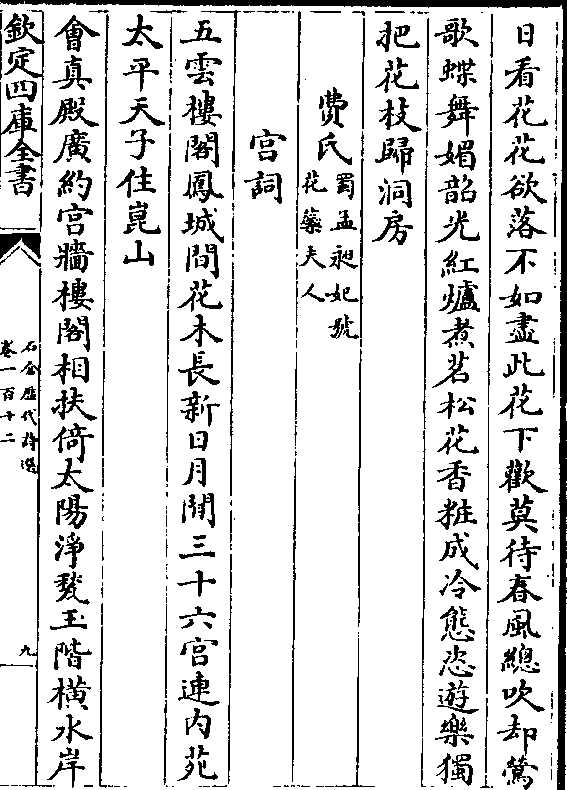 日看花花欲落不如盡此花下歡莫待春風總吹却鶯
歌蝶舞媚韶光紅爐煮茗松花香粧成冷態恣遊樂獨
把花枝歸洞房
費氏
蜀孟昶妃號
花蘂夫人
宫詞
五雲樓閣鳳城間花木長新日月閒三十六宫連内苑
太平天子住崑山
會真殿廣約宫牆樓閣相扶倚太陽淨甃玉階橫水岸
欽定四庫全書
石倉歷代詩選
卷一百十二
九